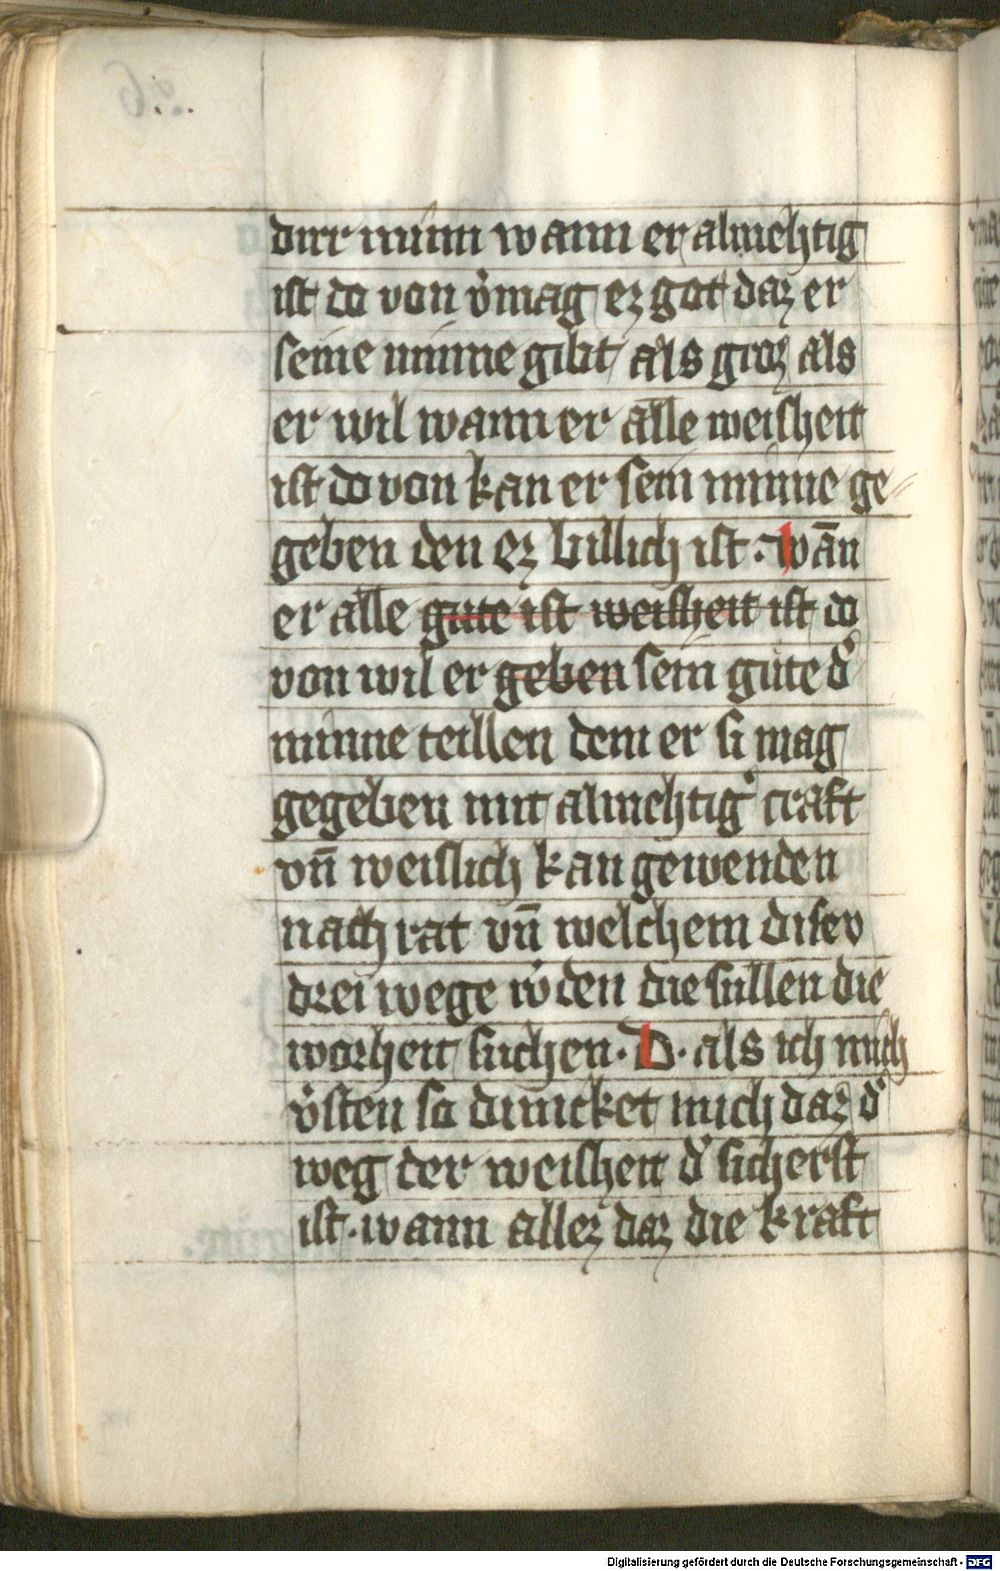 dirr minn wann er almehtig
ist do von v̓mag ez got daz er
seine minne gibt als groz als
er wil wann er alle weisheit
ist do von kan er sein minne ge⸗
geben den ez billich ist · wān
er alle gute ist weisheit ist do
von wil er geben sein gute d̓
minne teillen dem er si mag
gegeben mit almehtig̓ craft
vn̄ weislich kan gewenden
nach rat vn̄ welchem disev
drei wege w̓den die sullen die
worheit suchen · D · als ich mich
v̓sten so duncket mich daz d̓
weg der weisheit d̓ sicherst
ist · wann allez daz die kraft
Digitalisierung gefördert durch die Deutsche Forschungsgemeinschaft - DFG